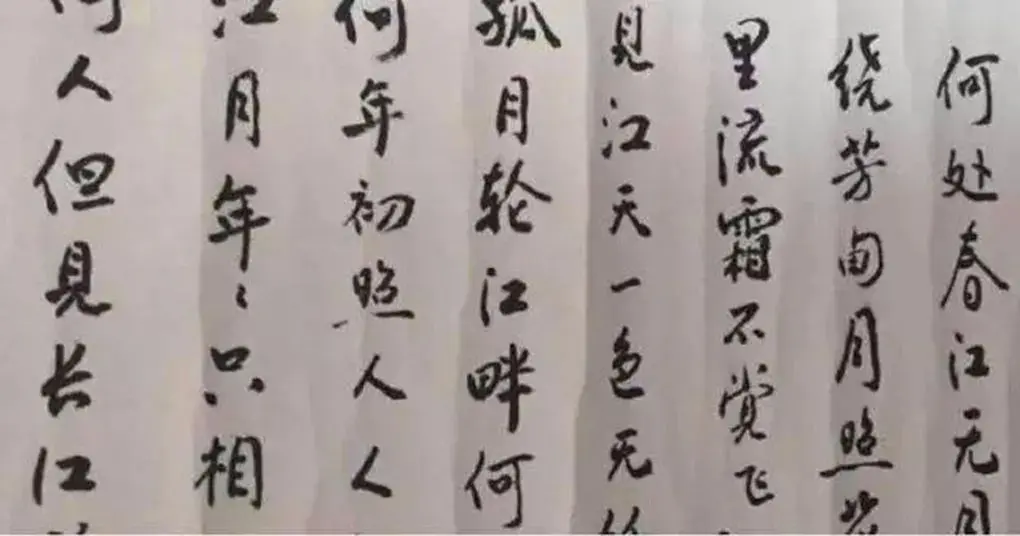 何处春江无月
绕芳甸月照花
里流霜不觉飞
见江天一色无
孤月轮江畔何
何年初照人人
江月年々只相
何人但见长江